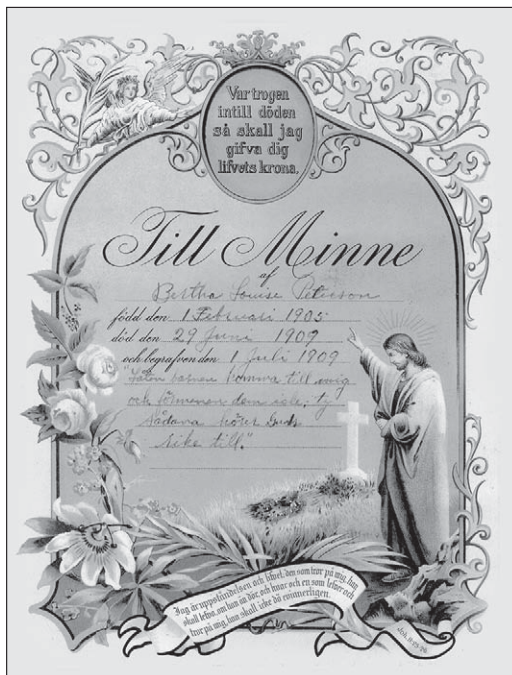 Var trogen
intill döden
så skall jag
gifva dig
lifvets krona.
Till Minne
af
Bertha Louise Peterson
född den 1 Februari 1905
död den 29 Juni 1909
och begrafven den 1 Juli 1909
"Låten barnen komma till mig
och förmenen dem icke, ty
sådana hörer Guds
rike till."
Jag är uppståndelsen och lifvet, den som tror på mig, han
skall lefva, om han än dör, och hvar och en som lefver och
tror på mig, han skall icke dö evinnerligen.
Joh. 11:25-26.